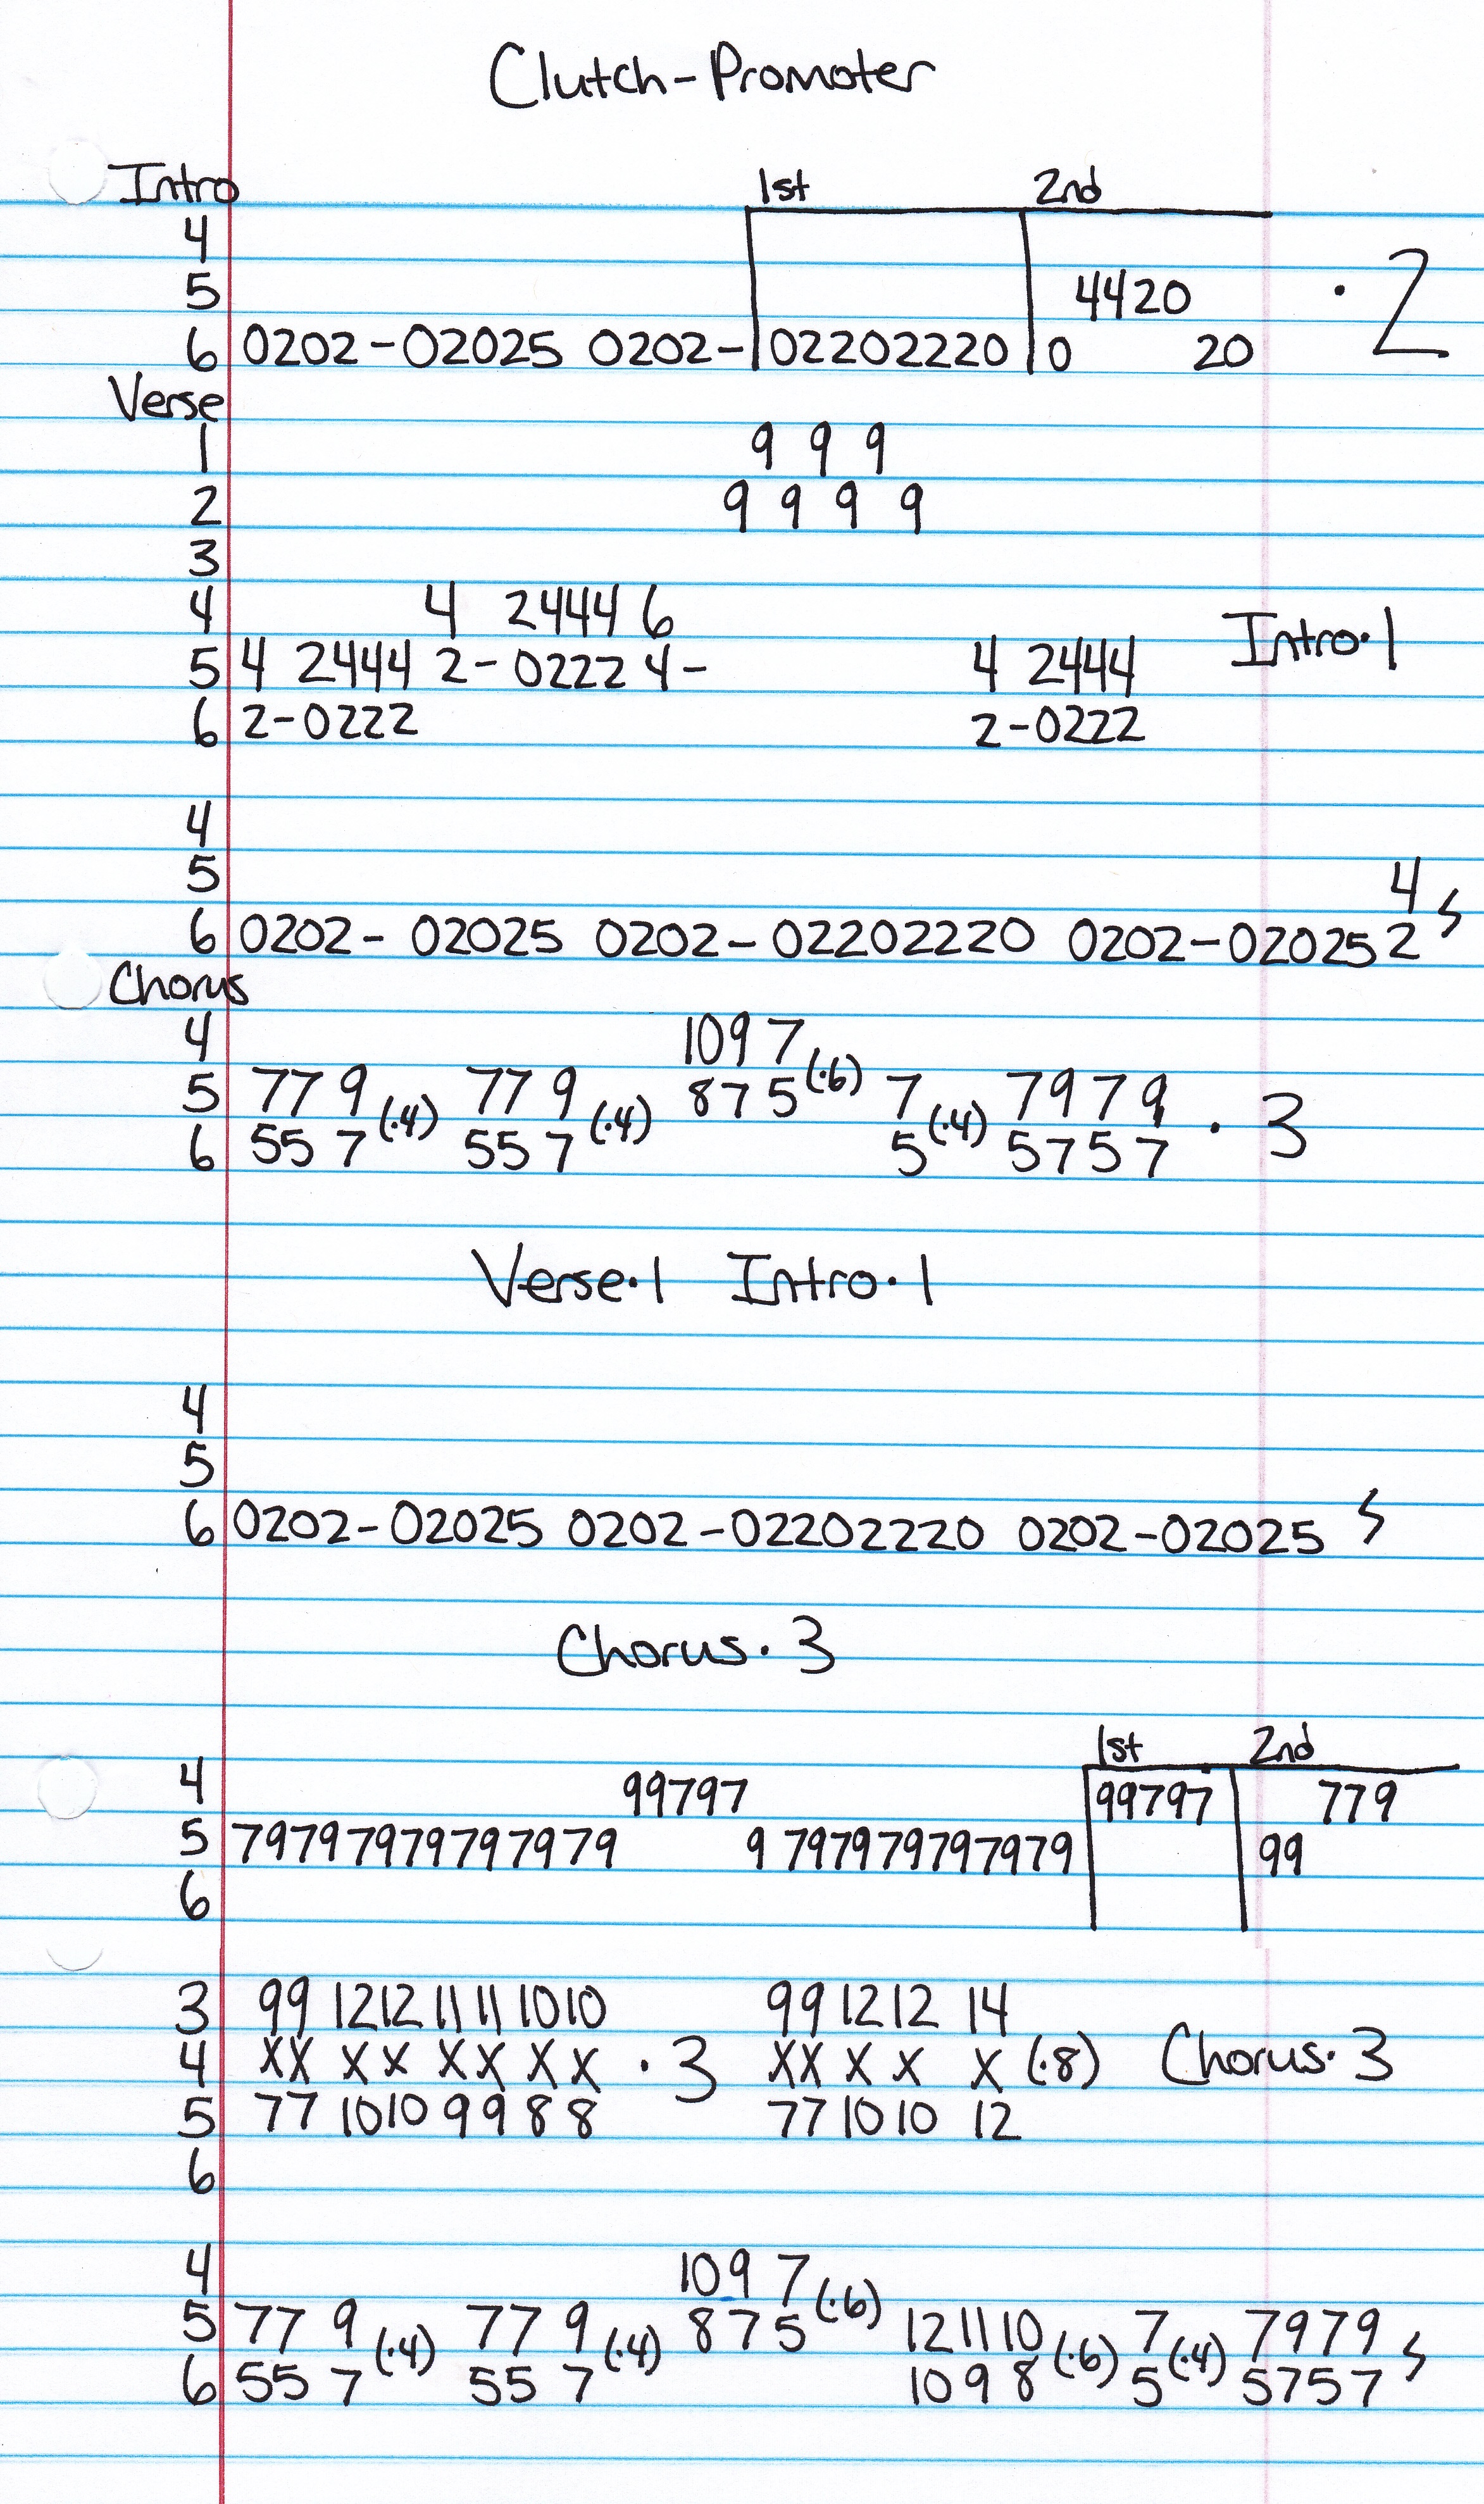 Clutch-Promoter
Intro 1st 2nd
4
5 4420 ·2
6 0202-02025 0202- 02202220 0 20
Verse
1 9 9 9
2 9 9 9 9
3
4 4 2444 6
5 4 2444 2-0222 4- 4 2444 Intro·1
6 2-0222 2-0222
4
5 4
6 0202- 02025 0202-02202220 0202-02025 2
Chorus
4 109 7
5 77 9 (·4) 77 9 (·4) 8 7 5 (·6) 7 (·4) 7979 ·3
6 55 7 55 7 5 5757
Verse·1 Intro·1
4
5
6 0202-02025 0202-02202220 0202-02025
Chorus·3
1st 2nd
4 99797 99797 779
5 79797979797979 9 797979797979 99
6
3 99 1212 1111 1010 991212 14
4 XX XX XX XX ·3 XX X X X (·8) Chorus·3
5 77 1010 99 88 771010 12
6
4 109 7
5 77 9 (·4) 77 9 (·4) 8 7 5 (·6) 121110 7 7979
6 55 7 55 7 109 8 (·6) 5 (·4) 5757